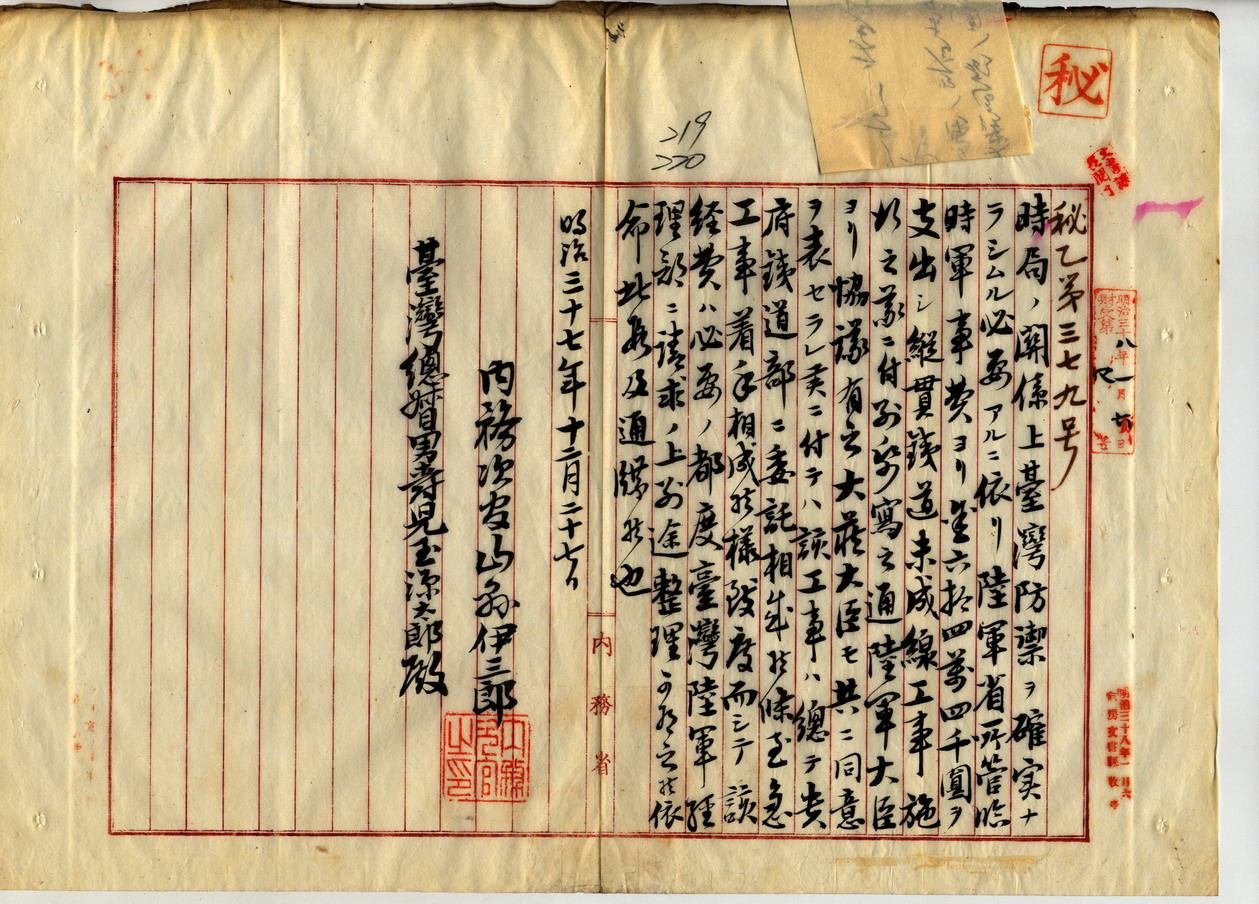 秘
219
220
秘乙第三七九号
時局ノ関係上臺灣防禦ヲ確実ナ
ラシムル必要アルニ依リ陸軍省所管臨
時軍事費ヨリ金六拾四萬四千圓ヲ
支出シ縦貫鉄道未成線工事施
行之義ニ付別紙寫之通陸軍大臣
ヨリ協議有之大蔵大臣モ共ニ同意
ヲ表セラレ実ニ付テハ該工事ハ總テ貴
府鉄道部ニ委託相成候條至急
工事着手相成候様致度而シテ該
経費ハ必要ノ都度臺灣陸軍経
理部ニ請求ノ上別途整理可有之候依
命此段及通牒候也
明治三十七年十二月二十七日
内務次官山縣伊三郎
臺灣總督男爵児玉源太郎殿
内務省
内務次官之印
明治三十八年一月